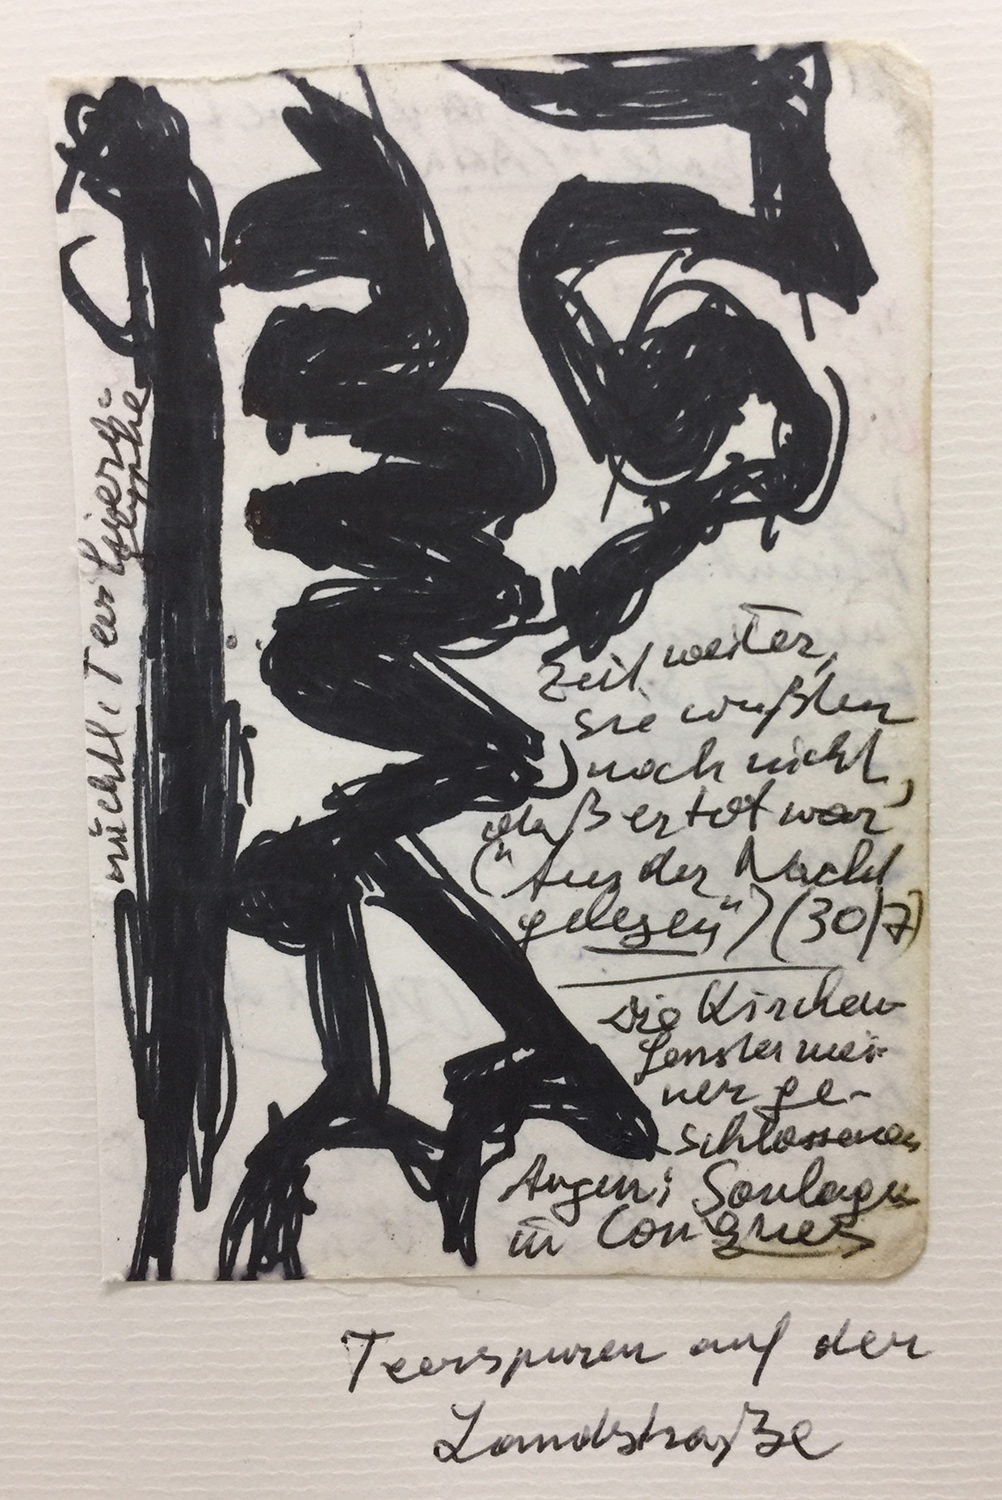 nicht: Teer
Zeit weiter,
sie wußten
noch nicht,
daß er tot war
("Aus der Nacht
gelesen") (30/7)
Die Kirchen-
fenster mei-
ner ge-
schlossenen
Augen: Soulages
in Conques
Teerspuren auf der
Landstraße